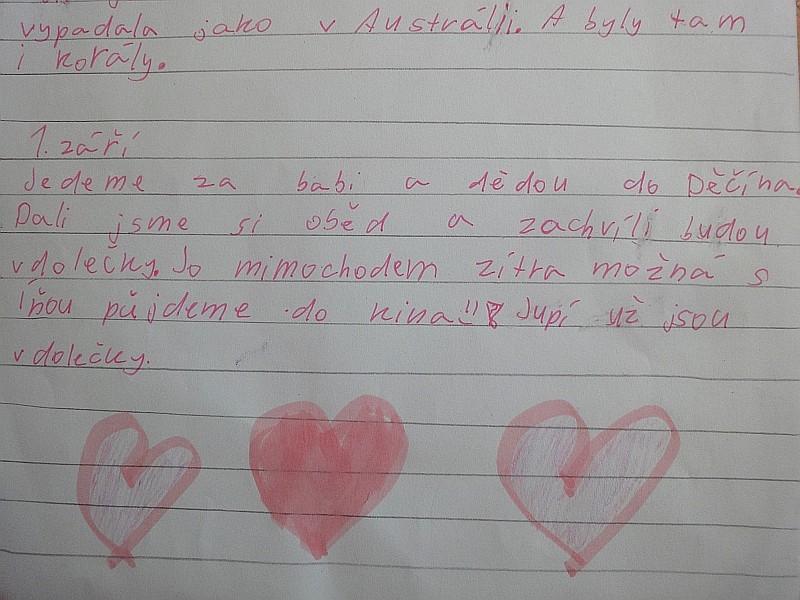 vypadala jako v Austrálii. A byly tam
i korály.
1. září
Jedeme za babi a dědou do Děčína.
Dali jsme si oběd a zachvíli budou
vdolečky. Jo mimochodem zítra možná s
Íňou půjdeme do kina!! Jupí už jsou
vdolečky.